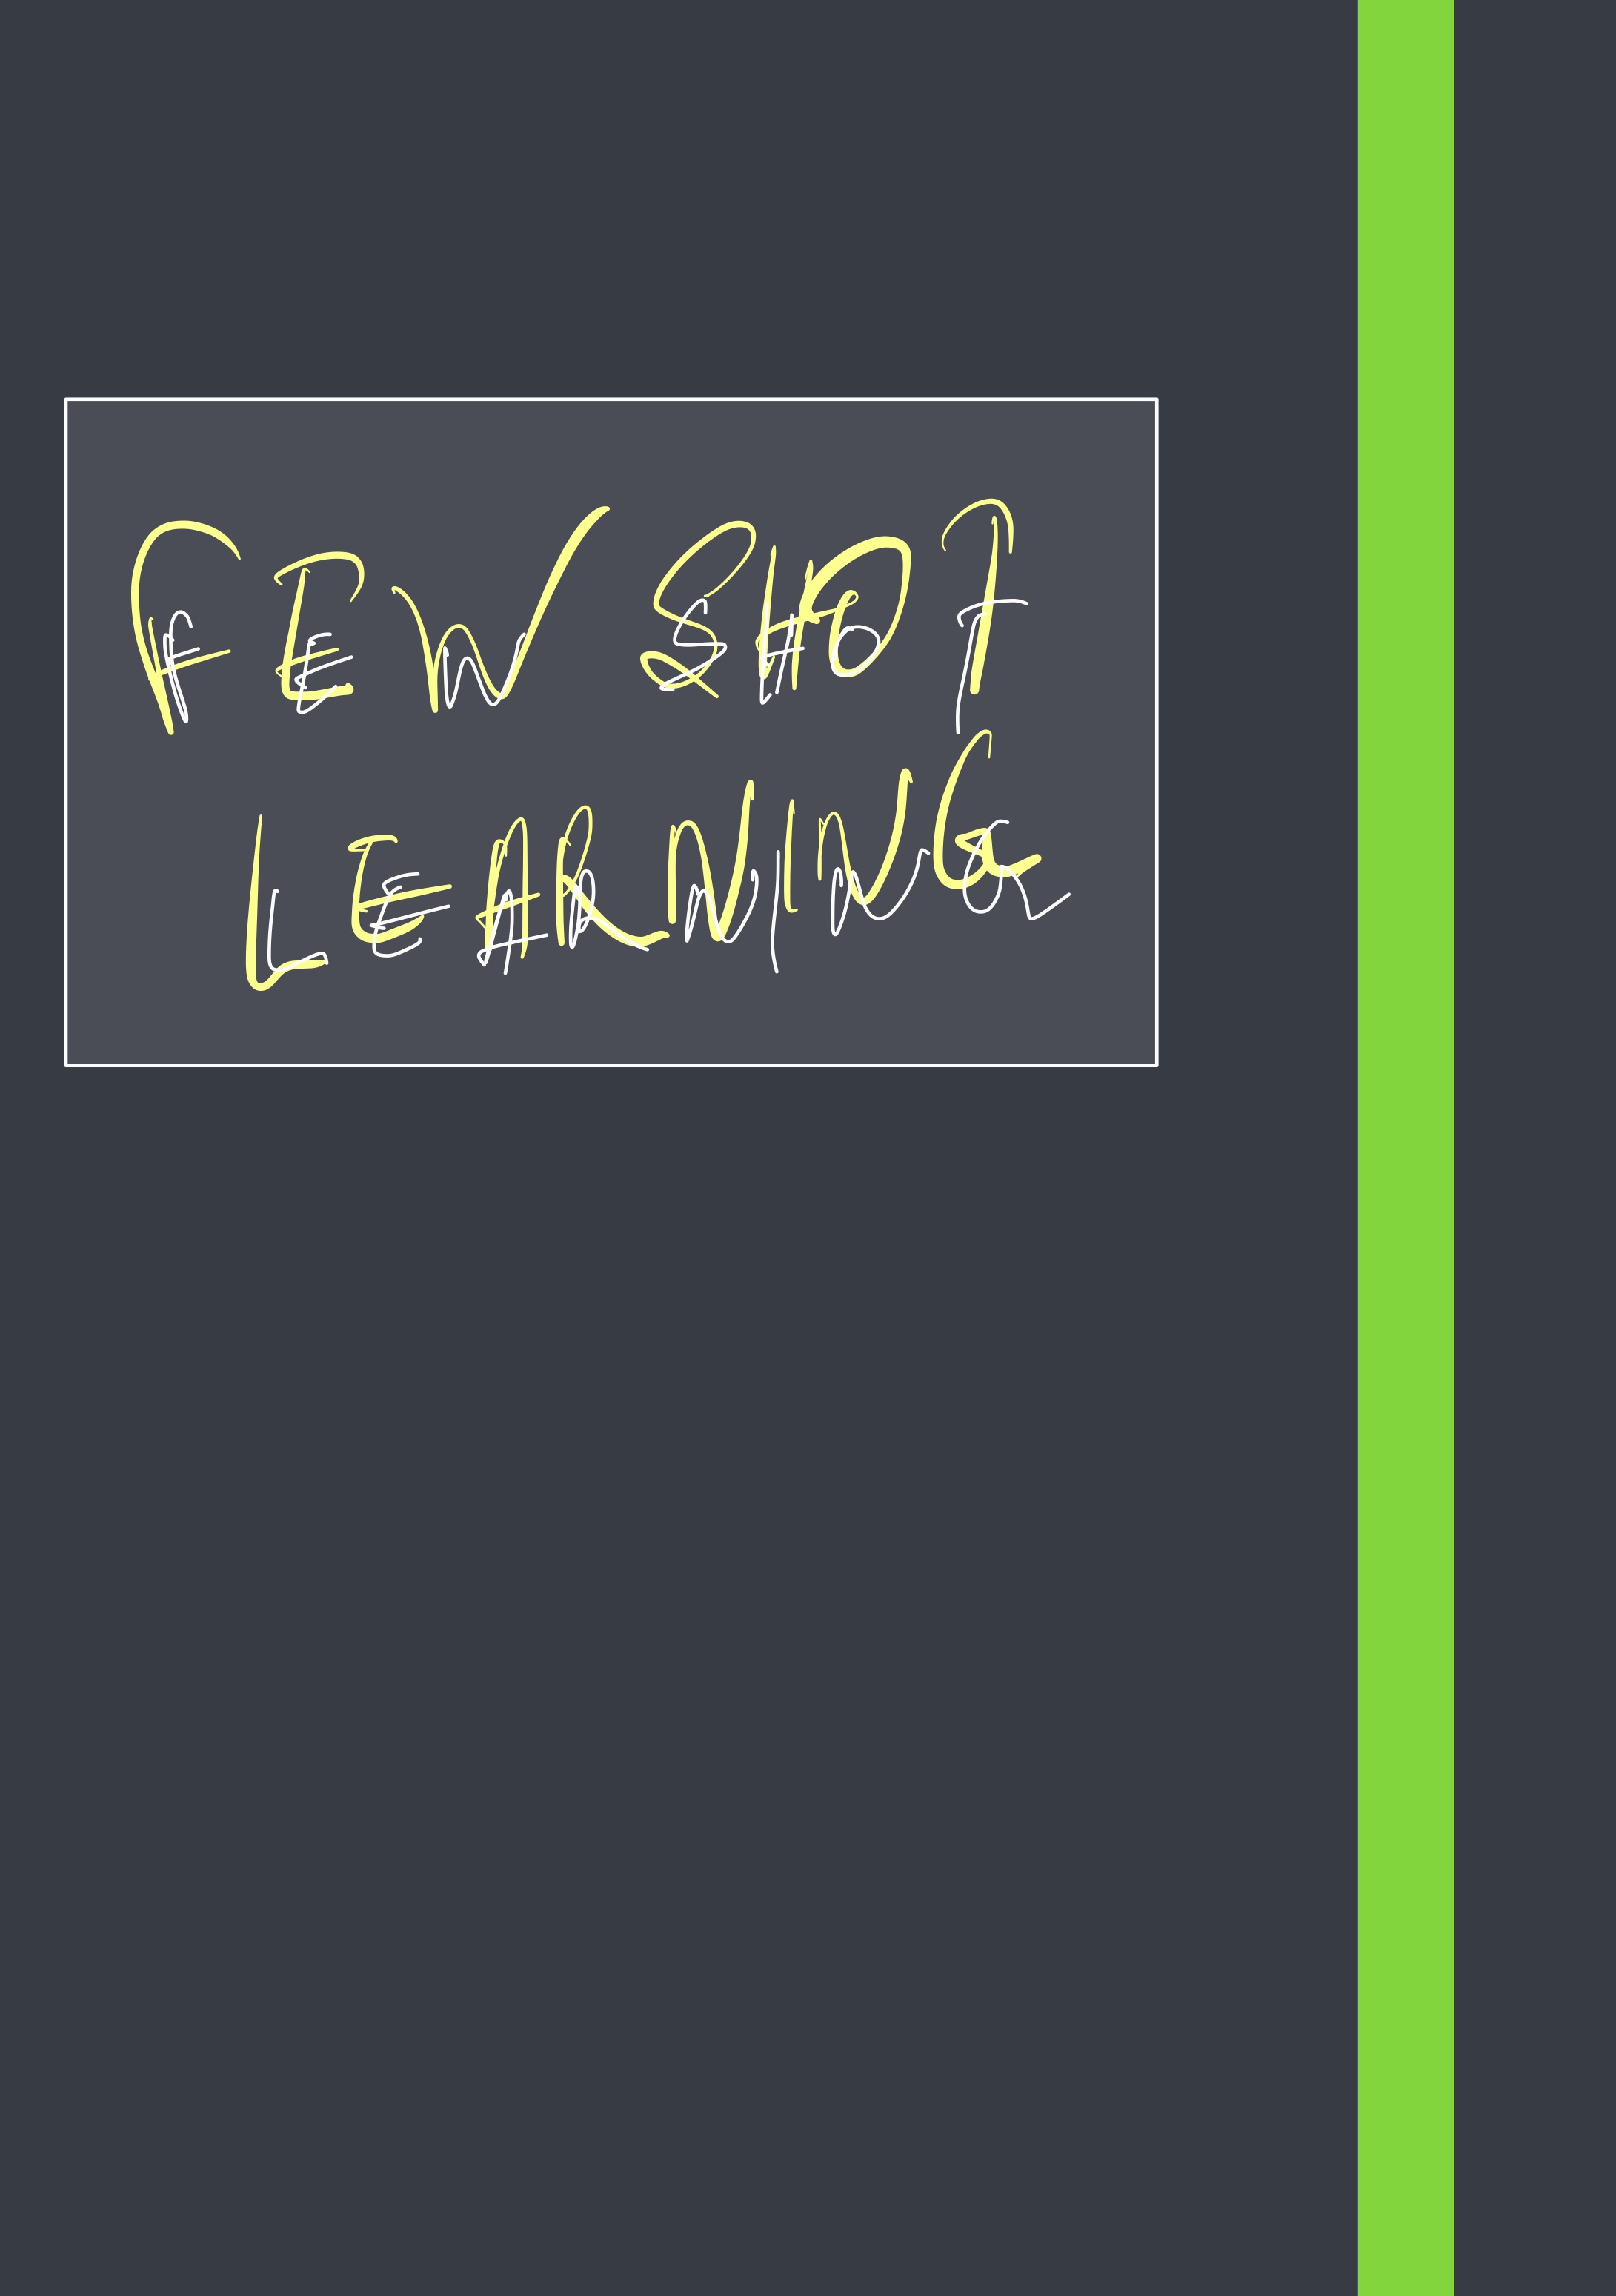 FEW SHOT
LEARNING